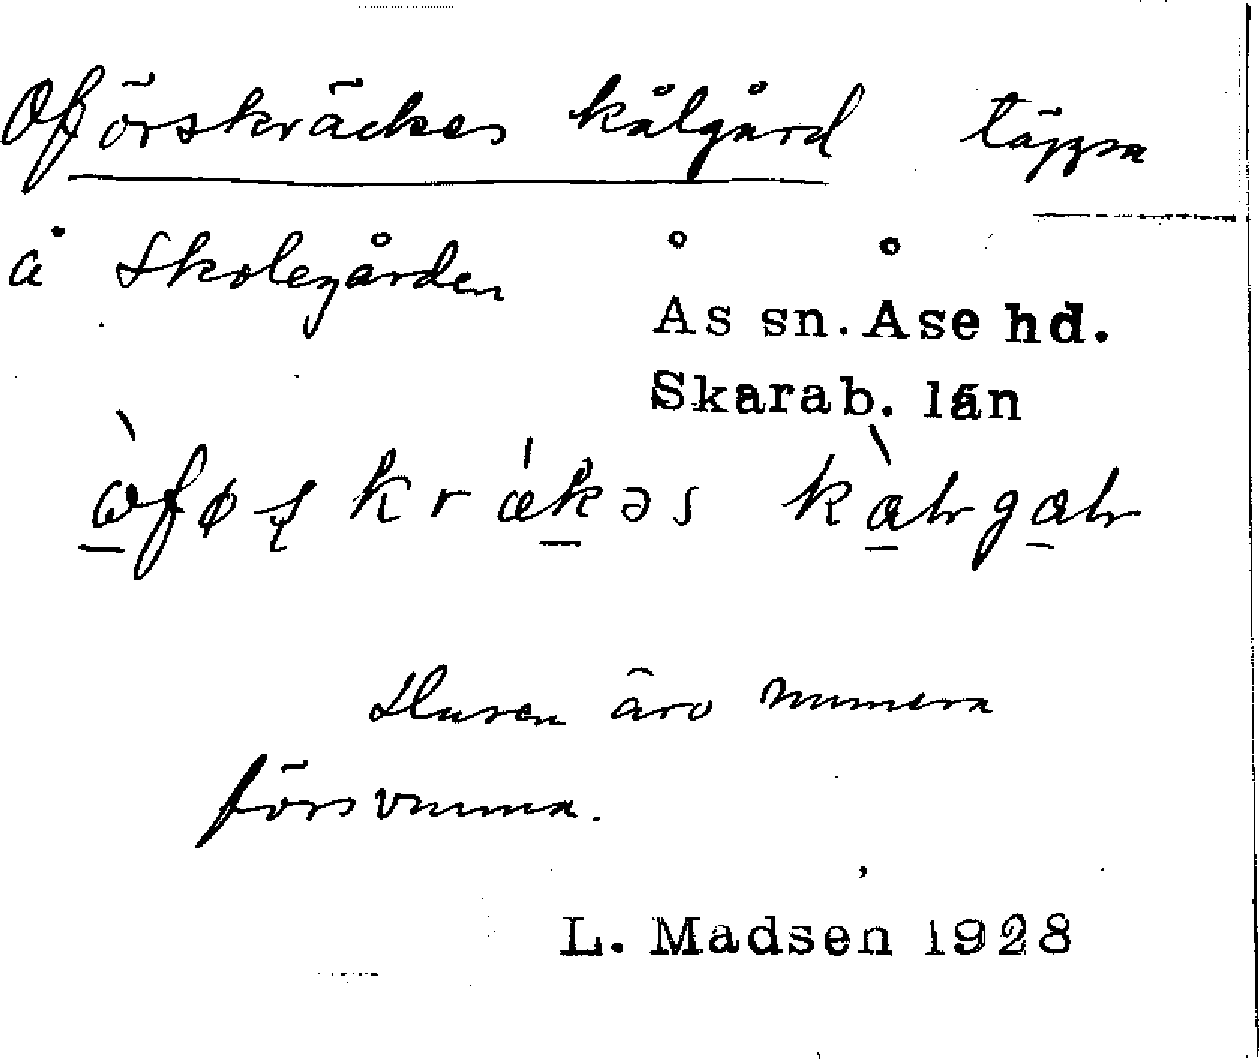 Oförskräckes kålgård täppa
å Skolegården
Ås sn. Åse hd.
Skarab. län
Husen äro numera
försvunna.
L. Madsen 1928